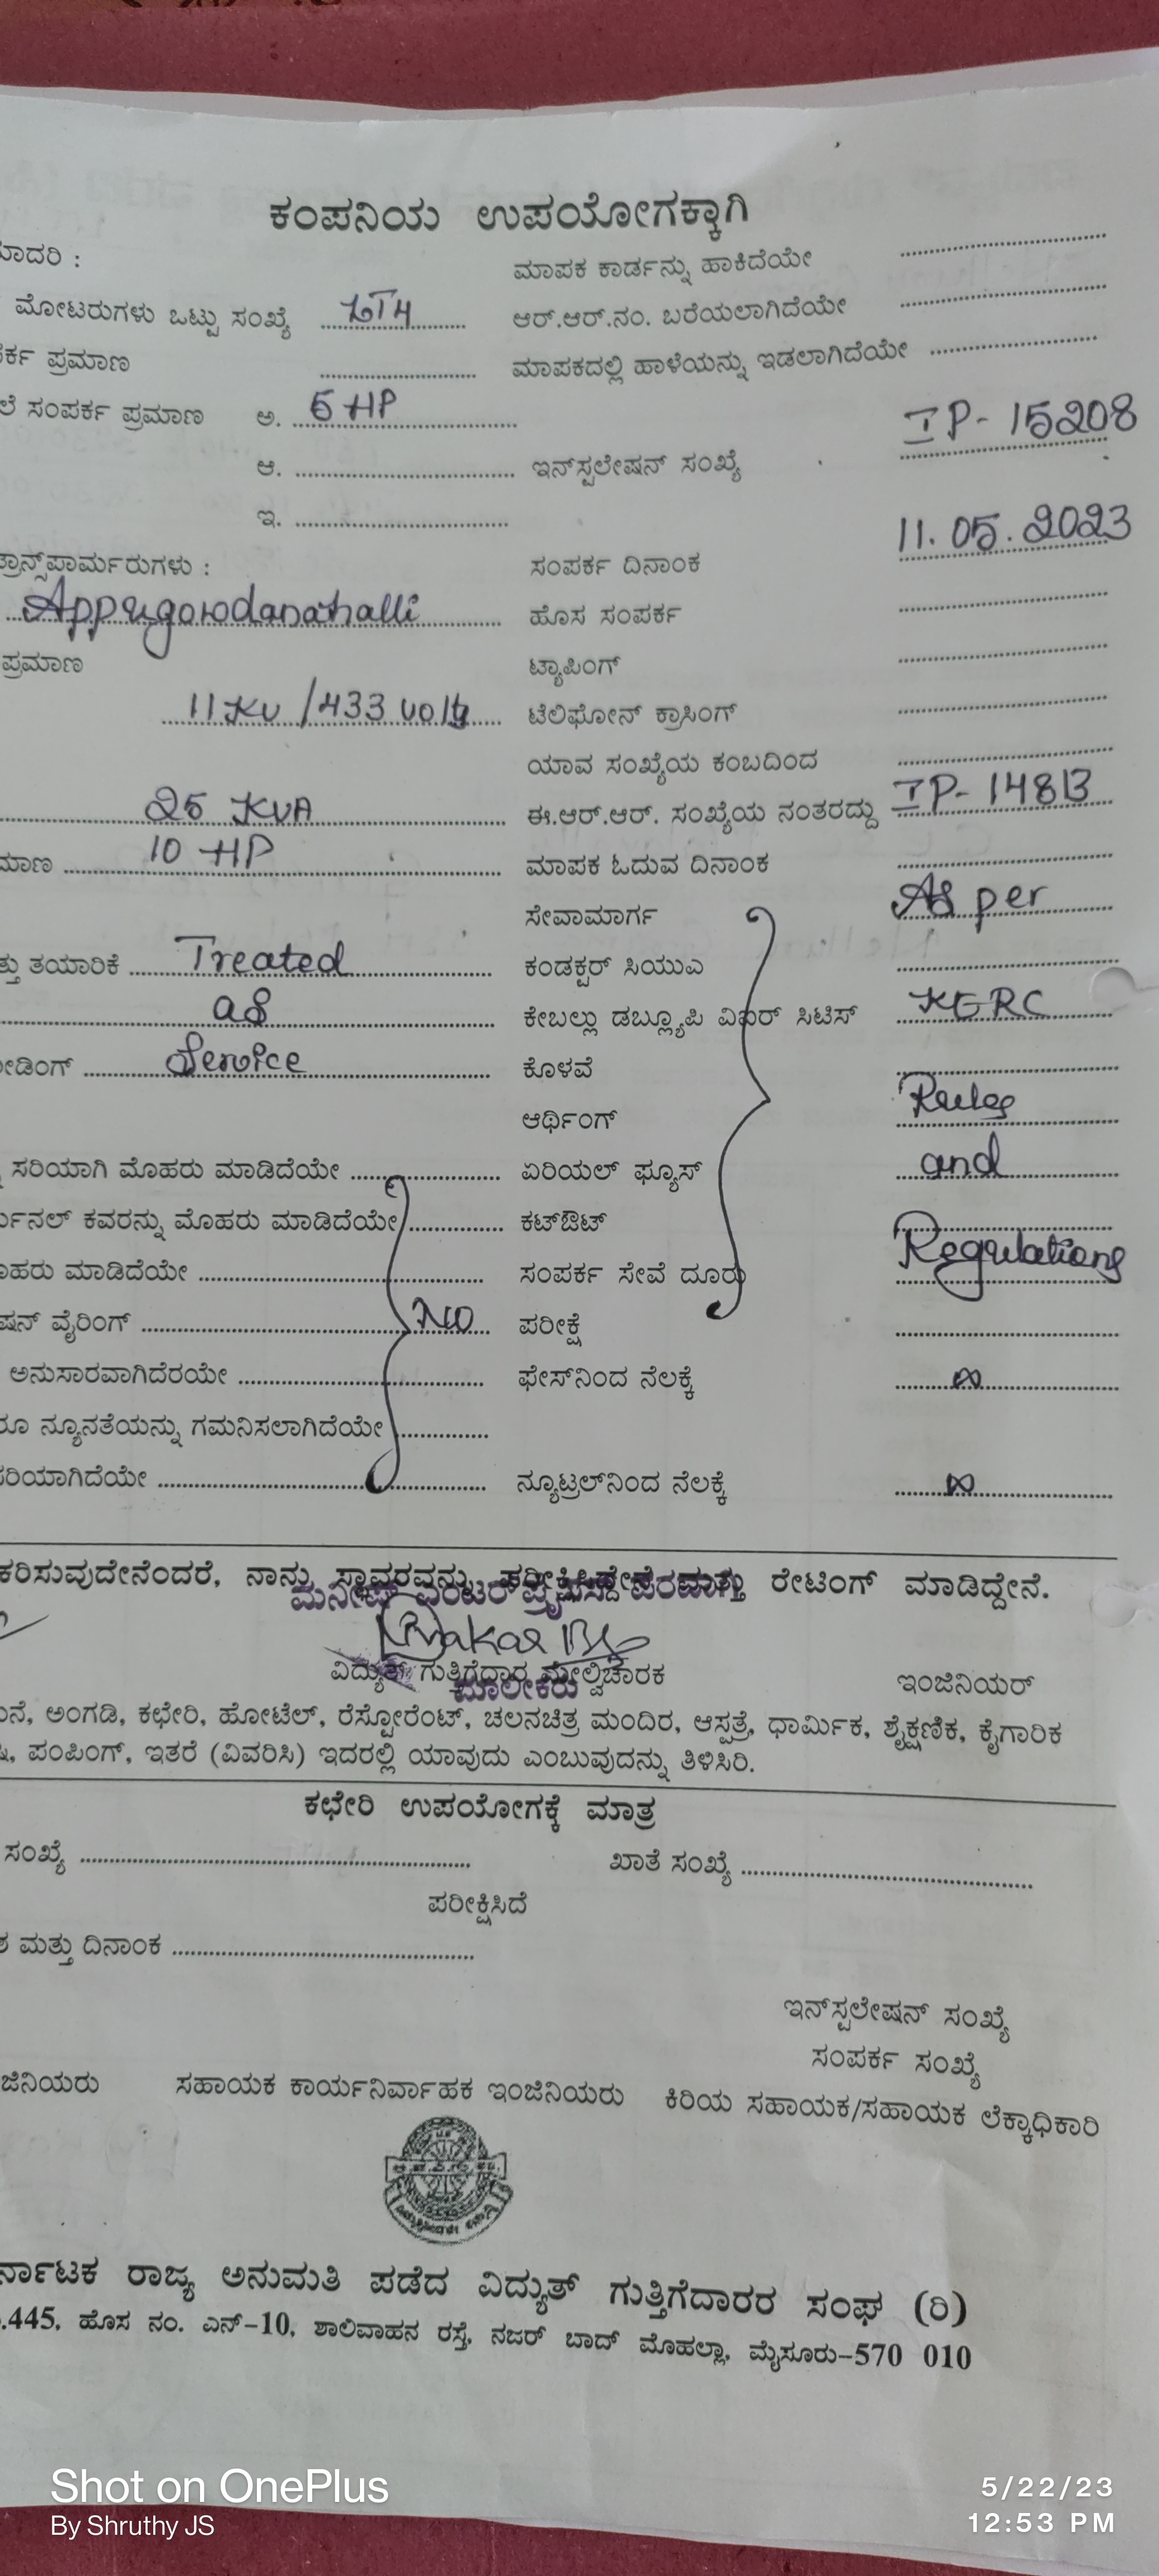 ಕಂಪನಿಯ ಉಪಯೋಗಕ್ಕಾಗಿ
ಮಾದರಿ :
ಮಾಪಕ ಕಾರ್ಡನ್ನು ಹಾಕಿದೆಯೇ
ಮೋಟರುಗಳು ಒಟ್ಟು ಸಂಖ್ಯೆ LT4
ಆರ್.ಆರ್.ನಂ. ಬರೆಯಲಾಗಿದೆಯೇ
ಪ್ರಮಾಣ
ಮಾಪಕದಲ್ಲಿ ಹಾಳೆಯನ್ನು ಇಡಲಾಗಿದೆಯೇ
ಸಂಪರ್ಕ ಪ್ರಮಾಣ ಅ. 5 HP
ಆ.
ಇನ್‌ಸ್ಪಲೇಷನ್ ಸಂಖ್ಯೆ IP- 15208
ಇ.
ಸಂಪರ್ಕ ದಿನಾಂಕ 11.05.2023
ಟ್ರಾನ್ಸ್‌ಪಾರ್ಮರುಗಳು :
Appugowdanahalli
ಹೊಸ ಸಂಪರ್ಕ
ಪ್ರಮಾಣ
ಟ್ಯಾಪಿಂಗ್
11 KV / 433 volts
ಟೆಲಿಫೋನ್ ಕ್ರಾಸಿಂಗ್
ಯಾವ ಸಂಖ್ಯೆಯ ಕಂಬದಿಂದ
25 KVA
ಈ.ಆರ್.ಆರ್. ಸಂಖ್ಯೆಯ ನಂತರದ್ದು IP- 14813
10 HP
ಮಾಪಕ ಓದುವ ದಿನಾಂಕ
ಸೇವಾಮಾರ್ಗ As per
ತಯಾರಿಕೆ Treated
ಕಂಡಕ್ಟರ್ ಸಿಯುಎ
as
ಕೇಬಲ್ಲು ಡಬ್ಲ್ಯೂಪಿ ವಿಐರ್ ಸಿಟಿಸ್ KERC
Service
ಕೊಳವೆ
ಆರ್ಥಿಂಗ್ Rules
ಸರಿಯಾಗಿ ಮೊಹರು ಮಾಡಿದೆಯೇ
ಏರಿಯಲ್ ಫ್ಯೂಸ್ and
ಕವರನ್ನು ಮೊಹರು ಮಾಡಿದೆಯೇ
ಕಟ್‌ಔಟ್
ಮಾಡಿದೆಯೇ
ಸಂಪರ್ಕ ಸೇವೆ ದೂರು Regulations
ವೈರಿಂಗ್ No
ಪರೀಕ್ಷೆ
ಅನುಸಾರವಾಗಿದೆರಯೇ
ಫೇಸ್‌ನಿಂದ ನೆಲಕ್ಕೆ ∞
ನ್ಯೂನತೆಯನ್ನು ಗಮನಿಸಲಾಗಿದೆಯೇ
ಸರಿಯಾಗಿದೆಯೇ
ನ್ಯೂಟ್ರಲ್‌ನಿಂದ ನೆಲಕ್ಕೆ ∞
ಕರಿಸುವುದೇನೆಂದರೆ, ನಾನು ಸ್ಥಾವರವನ್ನು ಪರೀಕ್ಷಿಸಿದ್ದೇನೆ ಮತ್ತು ರೇಟಿಂಗ್ ಮಾಡಿದ್ದೇನೆ.
ವಿದ್ಯುತ್ ಗುತ್ತಿಗೆದಾರ ಮೇಲ್ವಿಚಾರಕ
ಮಾಲೀಕರು
ಇಂಜಿನಿಯರ್
ಅಂಗಡಿ, ಕಛೇರಿ, ಹೋಟೆಲ್, ರೆಸ್ಟೋರೆಂಟ್, ಚಲನಚಿತ್ರ ಮಂದಿರ, ಆಸ್ಪತ್ರೆ, ಧಾರ್ಮಿಕ, ಶೈಕ್ಷಣಿಕ, ಕೈಗಾರಿಕ
ಪಂಪಿಂಗ್, ಇತರೆ (ವಿವರಿಸಿ) ಇದರಲ್ಲಿ ಯಾವುದು ಎಂಬುವುದನ್ನು ತಿಳಿಸಿರಿ.
ಕಛೇರಿ ಉಪಯೋಗಕ್ಕೆ ಮಾತ್ರ
ಸಂಖ್ಯೆ
ಖಾತೆ ಸಂಖ್ಯೆ
ಪರೀಕ್ಷಿಸಿದೆ
ಮತ್ತು ದಿನಾಂಕ
ಇನ್‌ಸ್ಪಲೇಷನ್ ಸಂಖ್ಯೆ
ಸಂಪರ್ಕ ಸಂಖ್ಯೆ
ಜಿನಿಯರು ಸಹಾಯಕ ಕಾರ್ಯನಿರ್ವಾಹಕ ಇಂಜಿನಿಯರು ಕಿರಿಯ ಸಹಾಯಕ/ಸಹಾಯಕ ಲೆಕ್ಕಾಧಿಕಾರಿ
ರ್ನಾಟಕ ರಾಜ್ಯ ಅನುಮತಿ ಪಡೆದ ವಿದ್ಯುತ್ ಗುತ್ತಿಗೆದಾರರ ಸಂಘ (ರಿ)
.445, ಹೊಸ ನಂ. ಎನ್-10, ಶಾಲಿವಾಹನ ರಸ್ತೆ, ನಜರ್ ಬಾದ್ ಮೊಹಲ್ಲಾ, ಮೈಸೂರು-570 010
Shot on OnePlus
By Shruthy JS
5/22/23
12:53 PM